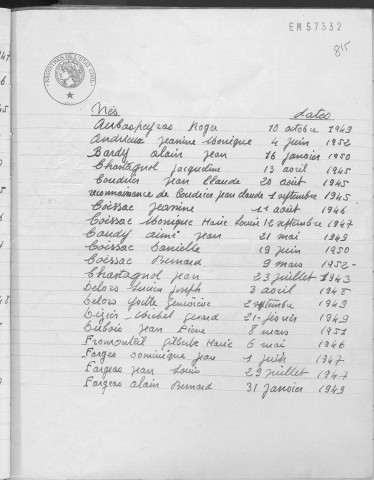 EN57332
815
Nés dates
Aubaspeyras Roger 10 octobre 1949
Andrieux Jeanine Monique 4 juin 1952
Bardy alain jean 16 janvier 1950
Chastagnol jacqueline 13 avril 1945
Coudrier jean Claude 20 août 1945
reconnaissance de Coudrier jean claude 1 septembre 1945
Coissac Jeanine 1 août 1946
Coissac Monique Marie Louise 12 septembre 1947
Caudy aimé jean 21 mai 1949
Coissac Danielle 19 juin 1950
Coissac Bernard 9 mars 1952
Chastagnol jean 23 juillet 1943
Delors Lucien Joseph 3 avril 1948
Delors Yvette Geneviève 2 septembre 1949
Michel Gerard 21 1949
Dubois jean Pierre 8 mars 1951
Fromonteil Gilberte Marie 6 mai 1946
Farges dominique jean 1 juin 1947
Farges jean Louis 29 juillet 1947
Farges alain Bernard 31 janvier 1949